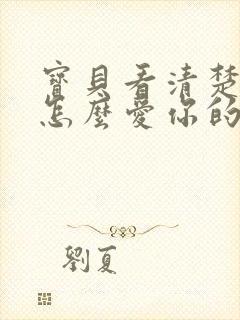 寶貝看清楚
怎麼愛你的
劉夏